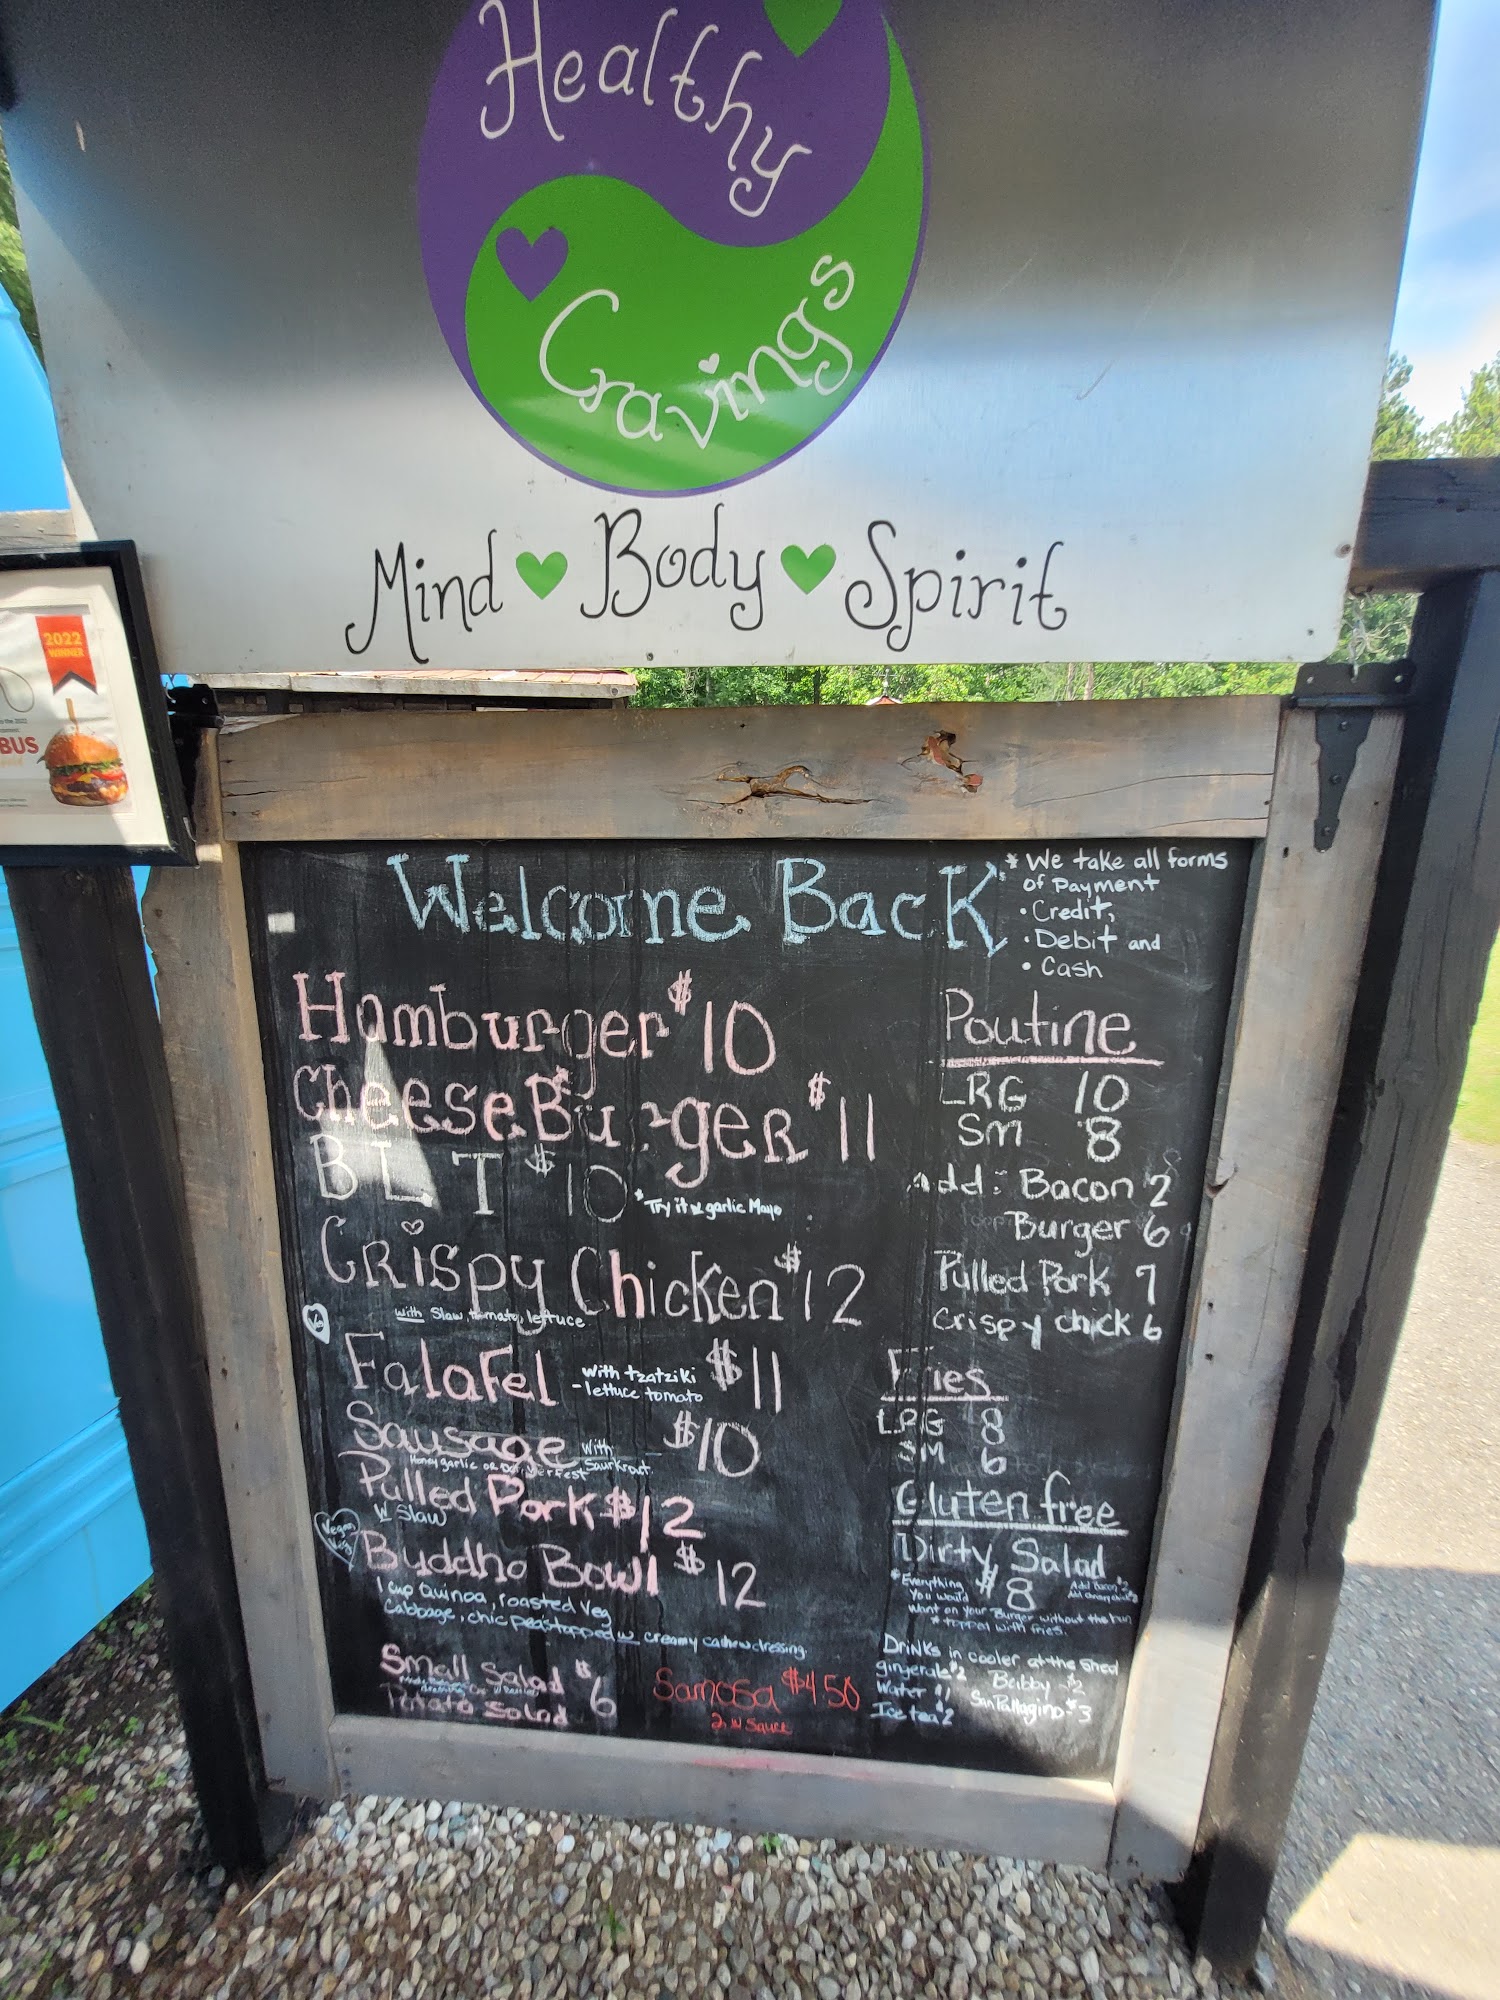 Healthy
Cravings
Mind Body Spirit
2022
WINNER
BUS
Welcome Back
* We take all forms
of Payment
• Credit,
• Debit and
• Cash
Hamburger $10
CheeseBurger $11
BLT $10 *Try it w garlic Mayo
Crispy Chicken $12
with Slaw, tomato, lettuce
Veg
Falafel with tzatziki $11
- lettuce tomato
Sausage with $10
Saurkraut.
Honey garlic or
Pulled Pork $12
w Slaw
Vegan
Buddha Bowl $12
1 cup Quinoa, roasted Veg
Cabbage, chic peas topped w creamy cashew dressing.
Small Salad $6
Potato Salad
Samosa $4.50
2 w Sauce
Poutine
LRG 10
SM 8
Add: Bacon 2
Burger 6
Pulled Pork 7
Crispy chick 6
Fries
LRG 8
SM 6
Gluten free
Dirty Salad
$8
*Everything
You would
want on your Burger without the bun
* topped with fries.
Add Bacon $2
Drinks in cooler at the Shed
gingerale $2 Bubby $2
Water $1 San Pallagino $3
Ice tea $2